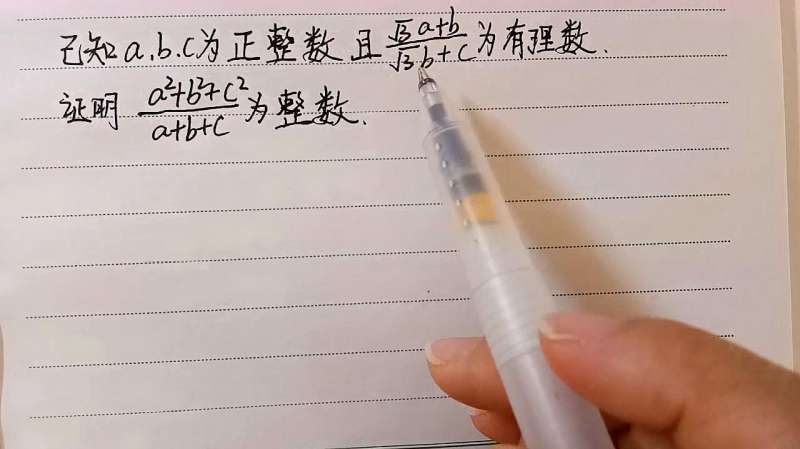 已知 a,b.c为正整数且 \frac{\sqrt{3}a+b}{\sqrt{3}b+c} 为有理数.
证明 \frac{a^2+b^2+c^2}{a+b+c} 为整数.